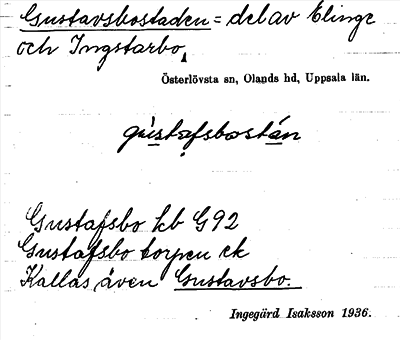 Gustavsbostaden = del av Elinge
och Ingstarbo,
Österlövsta sn, Olands hd, Uppsala län.
gustafsbostán
Gustafsbo hb G92
Gustafsbo torpen ek
Kallas även Gustavsbo.
Ingegärd Isaksson 1936.